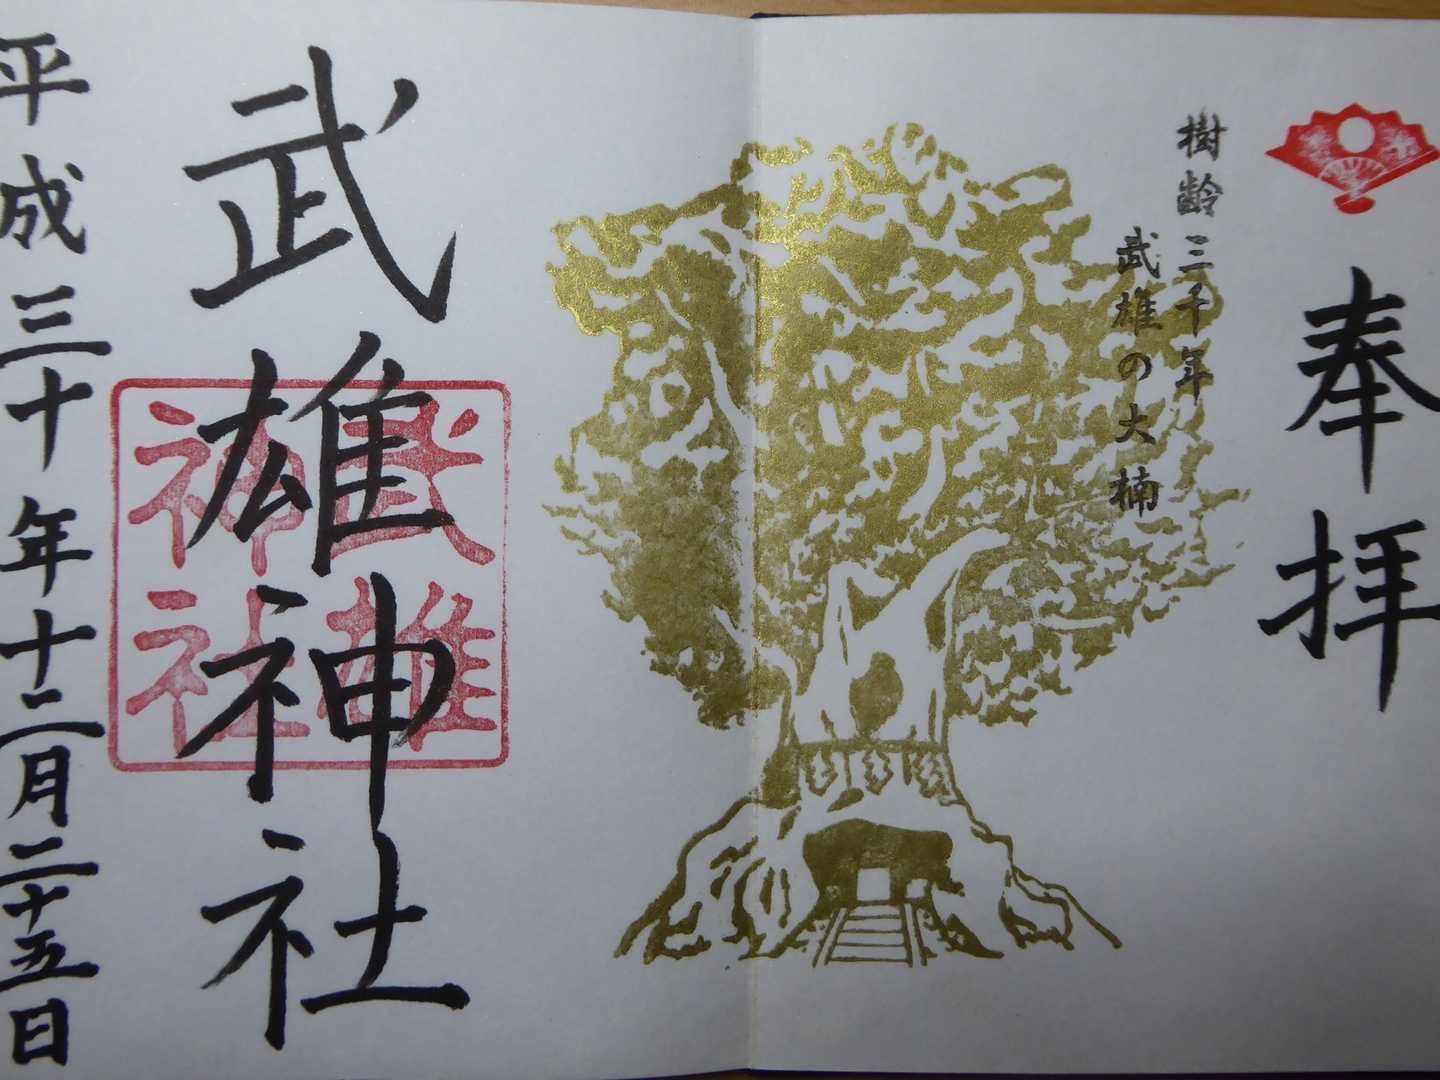 奉拝
樹齢三千年
武雄の大楠
武雄神社
武雄
神社
平成三十年十二月二十五日